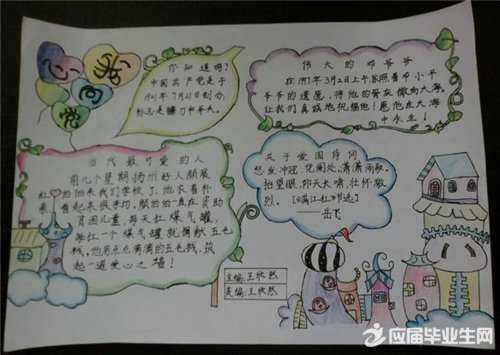 心向党
你知道吗?
中国共产党是于
1921年7月23日创办,
标志是镰刀和斧头。
伟大的邓爷爷
在1997年3月2日上午,依照着邓小平
爷爷的遗愿,将他的骨灰撒向大海,
让我们真诚地祝福他!愿他在大海
中永生!
当代最可爱的人
前几个星期扬州好人颜展
红叔叔来我们学校了。他衣着朴
看起来很亲切。颜叔叔一直在资助
贫困儿童,每天扛煤气罐,
每扛一个煤气罐就捐献五毛
钱。他用点点滴滴的五毛钱,筑
起一道爱心之墙!
关于爱国诗词
怒发冲冠,凭阑处、潇潇雨歇。
抬望眼,仰天长啸,壮怀激
烈。《满江红》节选
——岳飞
主编:王欣然
美编:王欣然
应届毕业生网